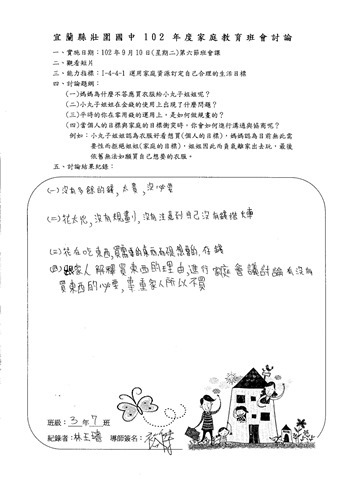 宜蘭縣壯圍國中 102 年度家庭教育班會討論
一、實施日期：102年9月10日(星期二)第六節班會課
二、觀看短片
三、能力指標：1-4-4-1 運用家庭資源訂定自己合理的生活目標
四、討論題綱：
(一)媽媽為什麼不答應買衣服給小丸子姐姐呢？
(二)小丸子姐姐在金錢的使用上出現了什麼問題？
(三)平時的你在零用錢的運用上，是如何做規畫的？
(四)當個人的目標與家庭的目標衝突時，你會如何進行溝通與協商呢？
例如：小丸子姐姐認為衣服好看想買(個人的目標)，媽媽認為目前無此需
要性而拒絕姐姐(家庭的目標)，姐姐因此而負氣離家出去玩，最後
依舊無法如願買自己想要的衣服。
五、討論結果紀錄：
(一)沒有多餘的錢,太貴,沒必要
(二)花太兇,沒有規劃,沒有注意到自己沒有錢搭火車
(三)花在吃東西,買需要的東西而很想要的,存錢
(四)跟家人解釋買東西的理由,進行家庭會議討論有沒有
買東西的必要,尊重家人所以不買
班級：3年7班
紀錄者：林玉
導師簽名：